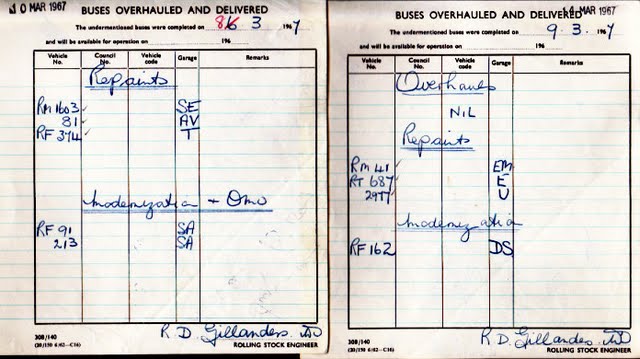 10 MAR 1967
BUSES OVERHAULED AND DELIVERED
The undermentioned buses were completed on 8 3 1967
and will be available for operation on 196
Vehicle No. Council No. Vehicle code Garage Remarks
Repaints
RM 1603 SE
81 AV
RF 374 T
Modernization + Omo
RF 91 SA
213 SA
R D Gillanders
308/140
(20/150 6/62-C16)
ROLLING STOCK ENGINEER
MAR 1967
BUSES OVERHAULED AND DELIVERED
The undermentioned buses were completed on 9.3.1967
and will be available for operation on 196
Vehicle No. Council No. Vehicle code Garage Remarks
Overhauls
NIL
Repaints
RM 41 EM
RT 687 E
2977 U
Modernization
RF 162 DS
R D Gillanders
308/140
(20/150 6/62-C16)
ROLLING STOCK ENGINEER